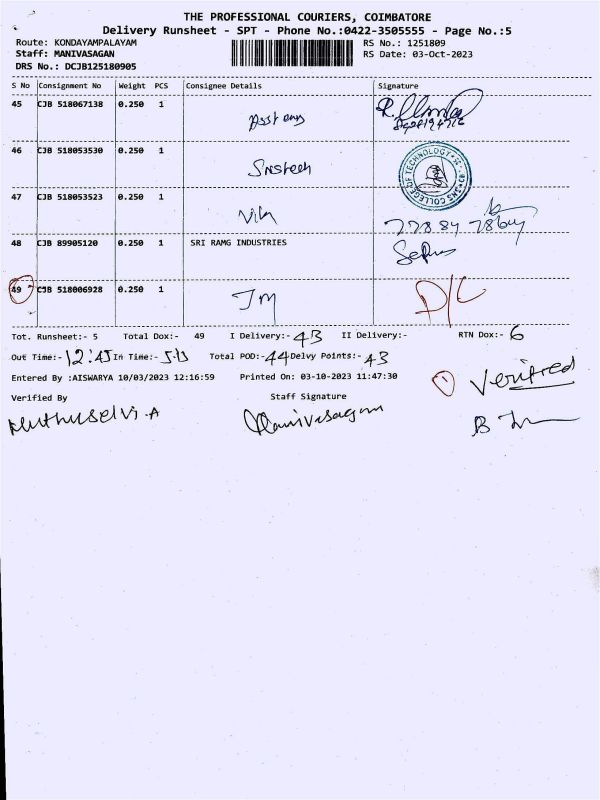 THE PROFESSIONAL COURIERS, COIMBATORE
Delivery Runsheet - SPT - Phone No.:0422-3505555 - Page No.:5
Route: KONDAYAMPALAYAM RS No.: 1251809
Staff: MANIVASAGAN RS Date: 03-Oct-2023
DRS No.: DCJB125180905
S No Consignment No Weight PCS Consignee Details Signature
45 CJB 518067138 0.250 1
46 CJB 518053530 0.250 1
SNS COLLEGE OF TECHNOLOGY
47 CJB 518053523 0.250 1
48 CJB 89905120 0.250 1 SRI RAMG INDUSTRIES
49 CJB 518006928 0.250 1 JM D/C
Tot. Runsheet:- 5 Total Dox:- 49 I Delivery:- 43 II Delivery:- RTN Dox:- 6
Out Time:- 12:45 In Time:- Total POD:- 44 Delvy Points:- 43
Entered By :AISWARYA 10/03/2023 12:16:59 Printed On: 03-10-2023 11:47:30
1 Verified
Verified By Staff Signature
Muthuselvi.A Manivasagam